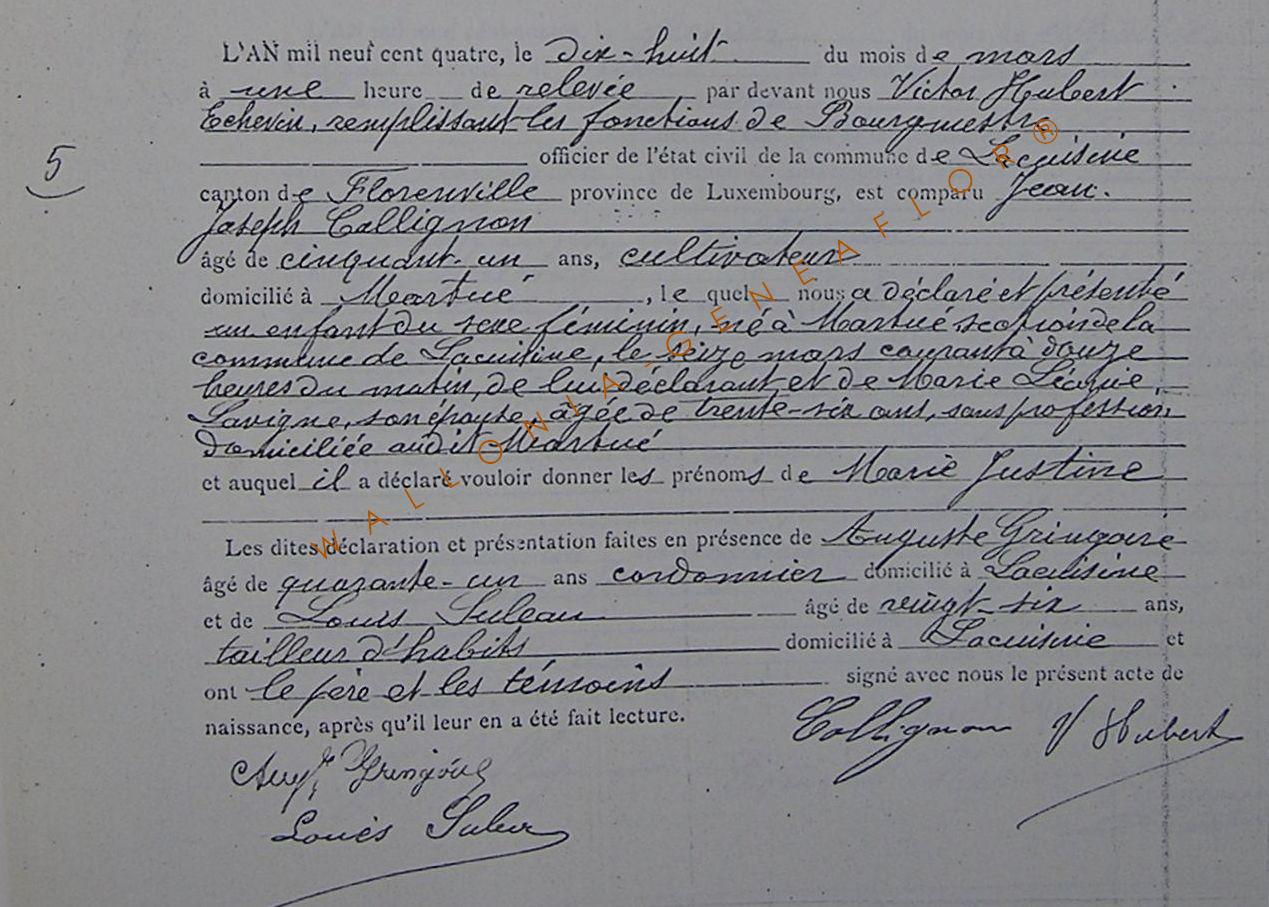 L'AN mil neuf cent quatre, le dix-huit du mois de mars
à une heure de relevée par devant nous Victor Hubert
Echevin, remplissant les fonctions de Bourgmestre
officier de l'état civil de la commune de Lacuisine
5
canton de Florenville province de Luxembourg, est comparu Jean
Joseph Collignon
âgé de cinquant-un ans, cultivateur
domicilié à Martué, lequel nous a déclaré et présenté
un enfant du sexe féminin, né à Martué section de la
commune de Lacuisine, le seize mars courant à douze
heures du matin, de lui déclarant et de Marie Léonie
Lavigne, son épouse, âgée de trente-six ans, sans profession
domiciliée audit Martué
et auquel il a déclaré vouloir donner les prénoms de Marie Justine
Les dites déclaration et présentation faites en présence de Auguste Gringoire
âgé de quarante-un ans cordonnier domicilié à Lacuisine
et de Louis Suleau âgé de vingt-six ans,
tailleur d'habits domicilié à Lacuisine et
ont le père et les témoins signé avec nous le présent acte de
naissance, après qu'il leur en a été fait lecture.
Collignon V Hubert
Aug
Louis
WALLONIA-GENEAFLOR®